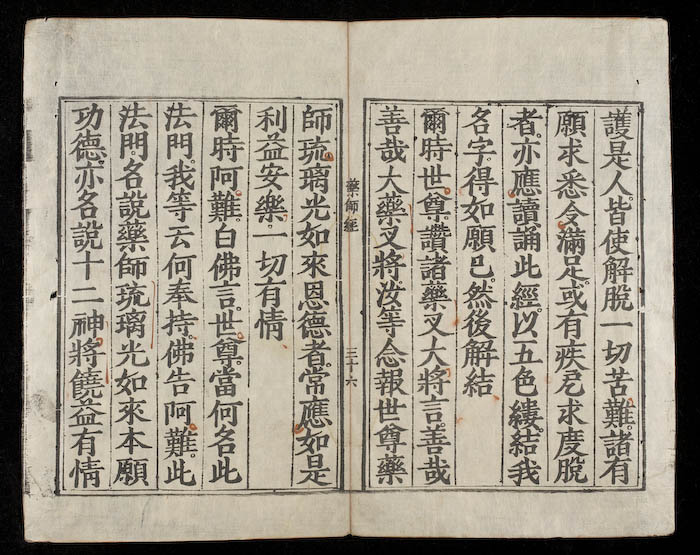 護是人。皆使解脫一切苦難。諸有
願求悉令滿足。或有疾厄求度脫
者。亦應讀誦此經。以五色縷。結我
名字。得如願已。然後解結
爾時世尊讚諸藥叉大將言。善哉
善哉大藥叉將汝等念報世尊藥
藥師經
三十六
師琉璃光如來恩德者。常應如是
利益安樂。一切有情
爾時阿難。白佛言。世尊。當何名此
法門。我等云何奉持。佛告阿難。此
法門名說藥師琉璃光如來本願
功德。亦名說十二神將饒益有情